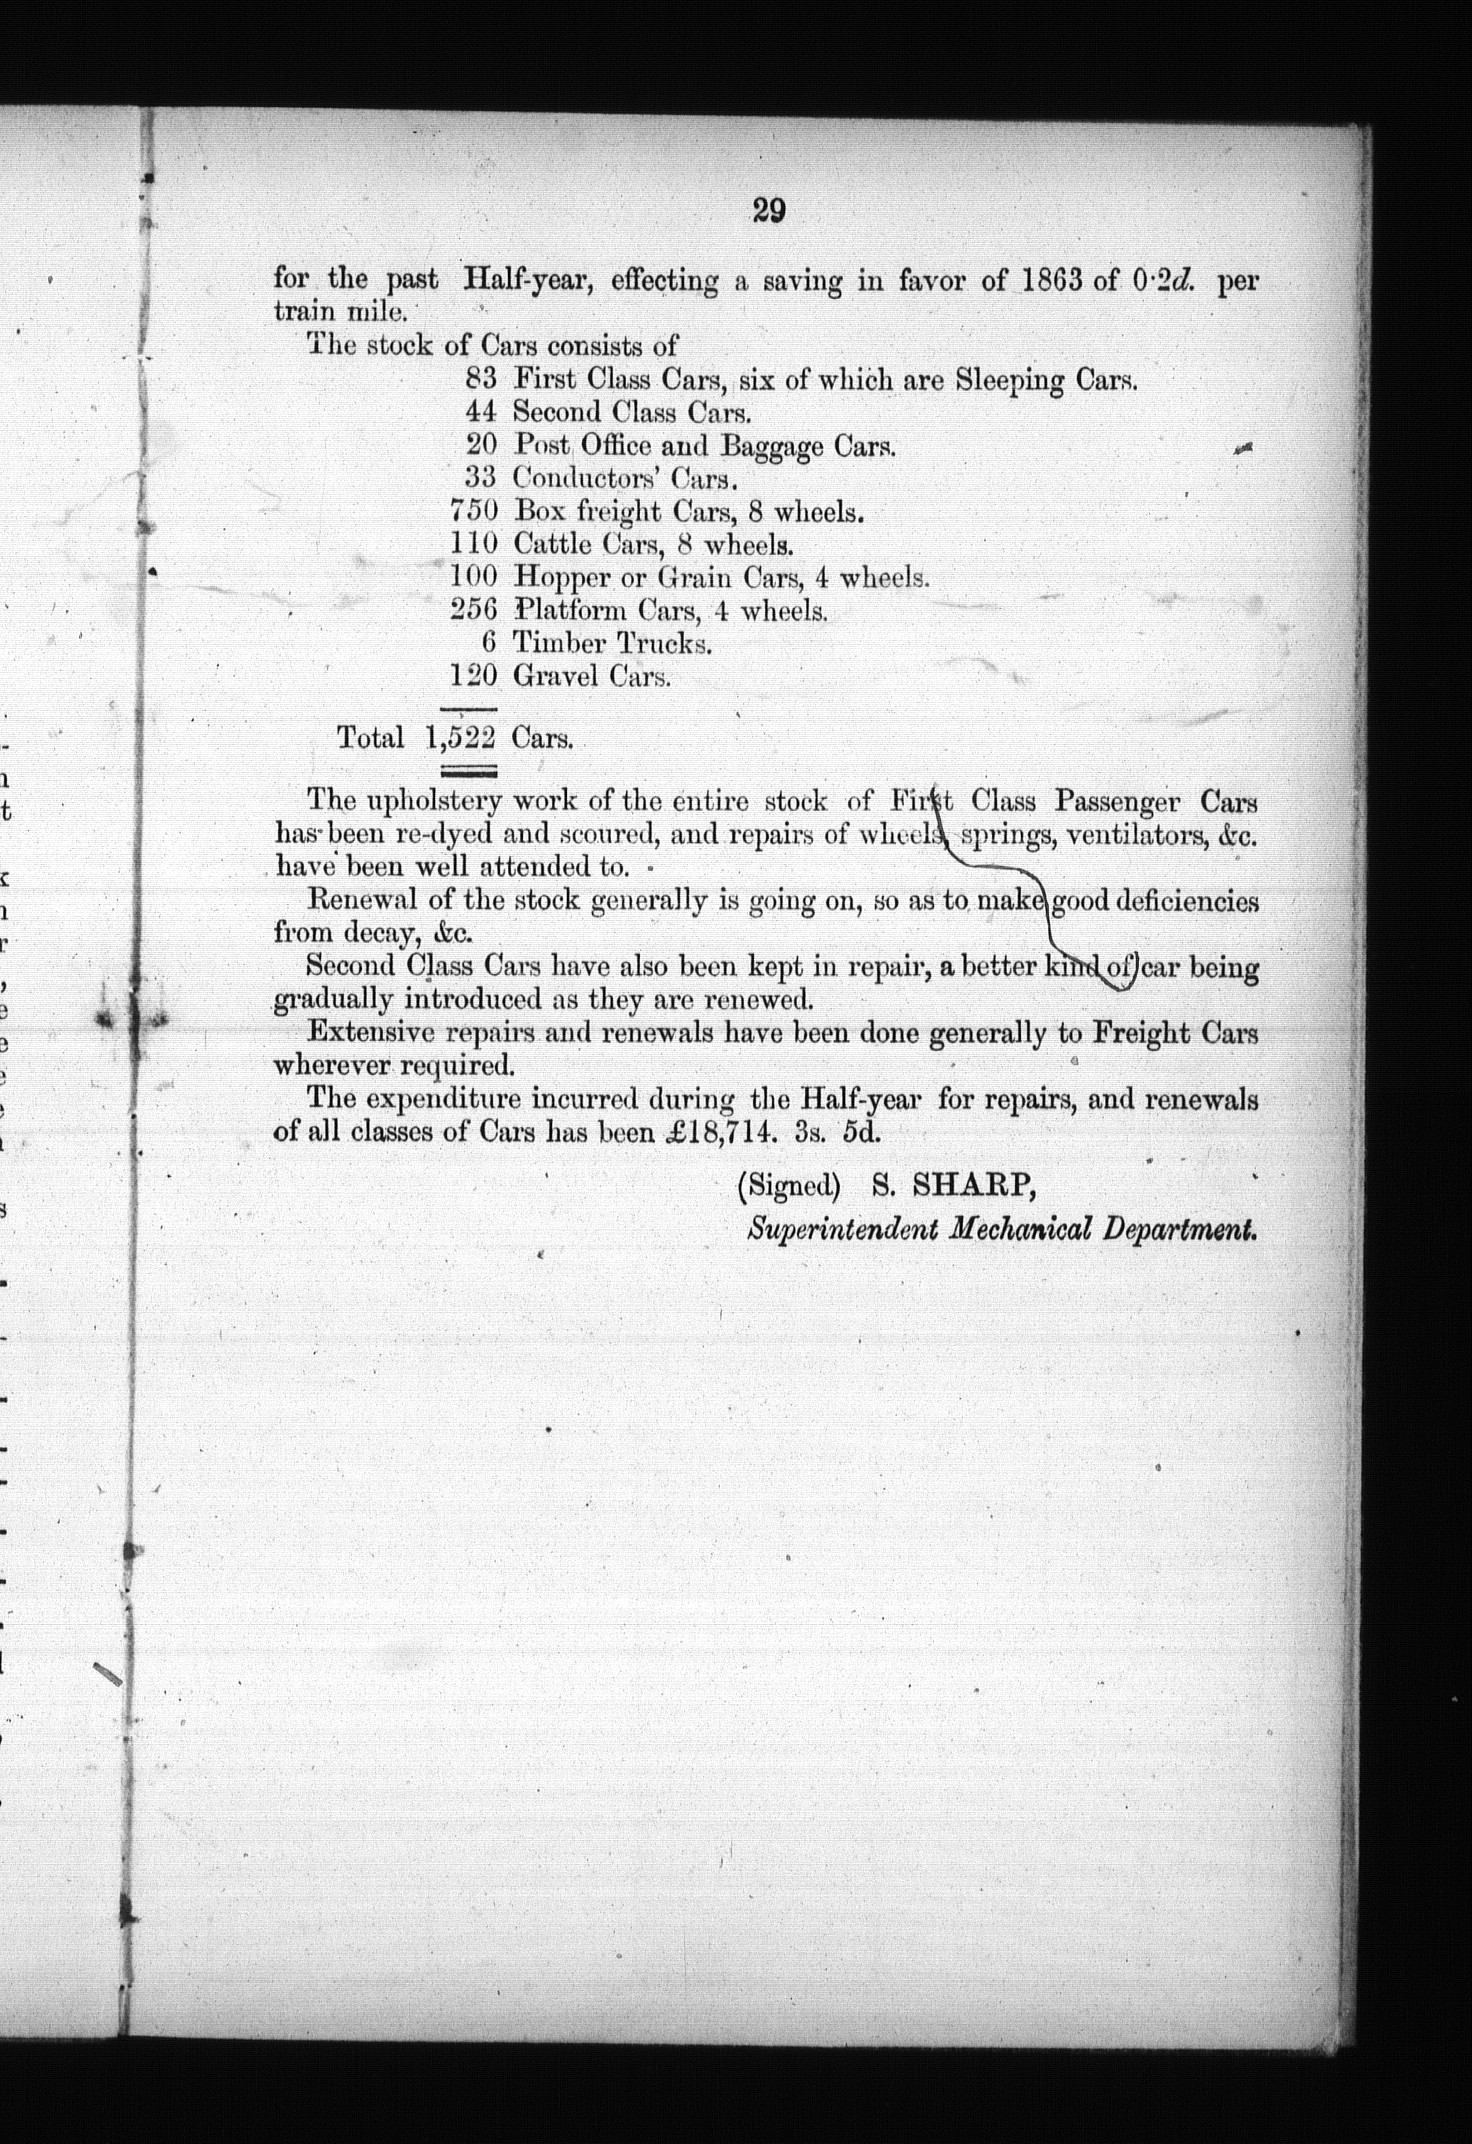 29
for the past Half-year, effecting a saving in favor of 1863 of 0·2d. per
train mile.
The stock of Cars consists of
83 First Class Cars, six of which are Sleeping Cars.
44 Second Class Cars.
20 Post Office and Baggage Cars.
33 Conductors' Cars.
750 Box freight Cars, 8 wheels.
110 Cattle Cars, 8 wheels.
100 Hopper or Grain Cars, 4 wheels.
256 Platform Cars, 4 wheels.
6 Timber Trucks.
120 Gravel Cars.
Total 1,522 Cars.
The upholstery work of the entire stock of First Class Passenger Cars
has been re-dyed and scoured, and repairs of wheels, springs, ventilators, &c.
have been well attended to.
Renewal of the stock generally is going on, so as to make good deficiencies
from decay, &c.
Second Class Cars have also been kept in repair, a better kind of car being
gradually introduced as they are renewed.
Extensive repairs and renewals have been done generally to Freight Cars
wherever required.
The expenditure incurred during the Half-year for repairs, and renewals
of all classes of Cars has been £18,714. 3s. 5d.
(Signed) S. SHARP,
Superintendent Mechanical Department.